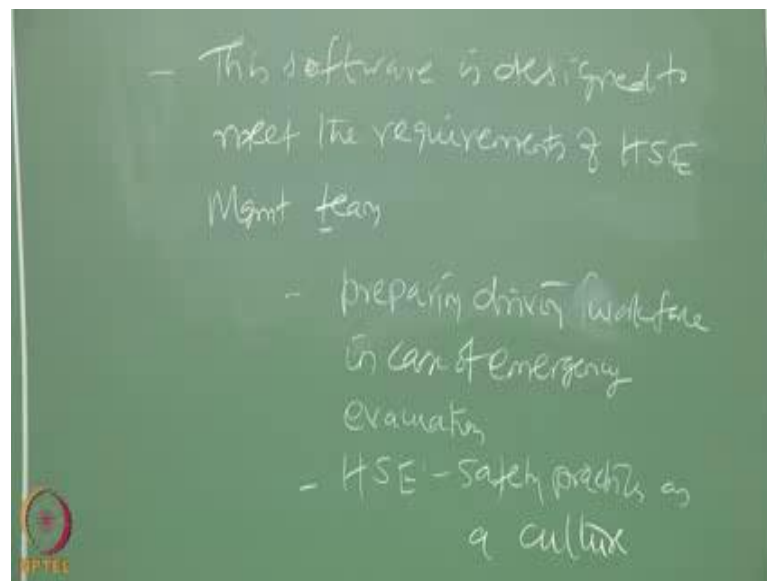 - This software is designed to
meet the requirements of HSE
Mgmt team
- preparing driving workforce
in case of emergency
evacuation
- HSE - Safety practices as
a culture
NPTEL